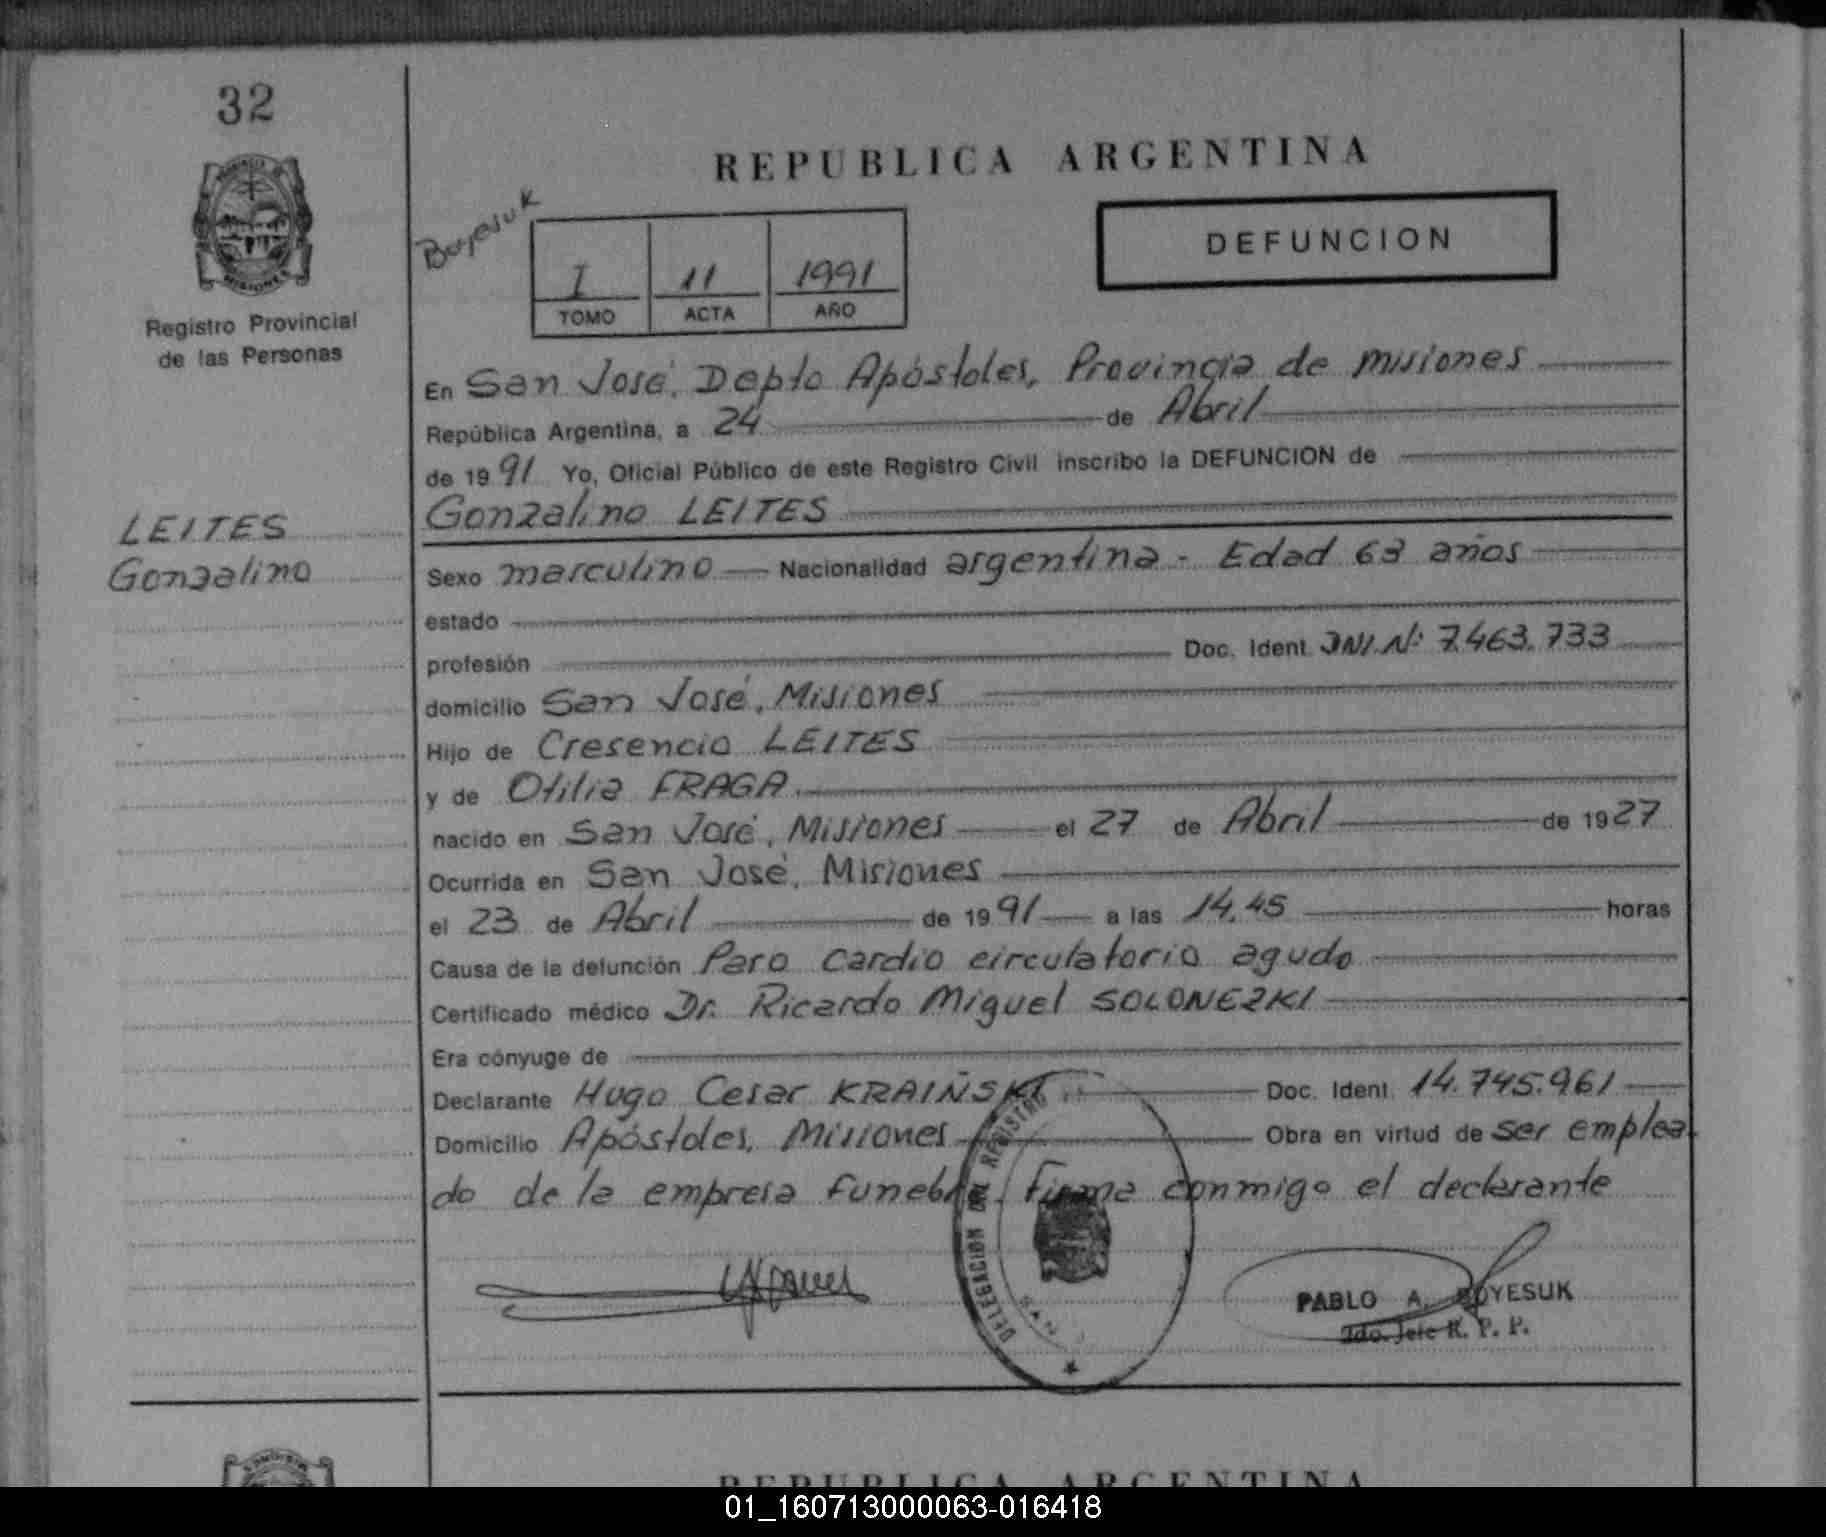 32
REPUBLICA ARGENTINA
Boyesuk
DEFUNCION
I 11 1991
TOMO ACTA AÑO
MISIONES
Registro Provincial
de las Personas
En San José, Depto Apóstoles, Provincia de misiones
República Argentina, a 24 de Abril
de 1991 Yo, Oficial Público de este Registro Civil inscribo la DEFUNCION de
Gonzalino LEITES
LEITES
Gonzalino
Sexo masculino Nacionalidad argentina - Edad 63 años
estado
profesión Doc. Ident. DNI. Nº 7.463.733
domicilio San José, Misiones
Hijo de Cresencio LEITES
y de Otilia FRAGA
nacido en San José, Misiones el 27 de Abril de 1927
Ocurrida en San José, Misiones
el 23 de Abril de 1991 a las 14.45 horas
Causa de la defunción Paro cardio circulatorio agudo
Certificado médico Dr. Ricardo Miguel SOLONEZKI
Era cónyuge de
Declarante Hugo Cesar KRAIÑSKI Doc. Ident. 14.745.961
Domicilio Apóstoles, Misiones Obra en virtud de ser emplea
do de la empresa funebre. Firma conmigo el declarante
DELEGACION DEL REGISTRO
PABLO A. BOYESUK
2do. Jefe R. P. P.
REPUBLICA ARGENTINA
01_160713000063-016418